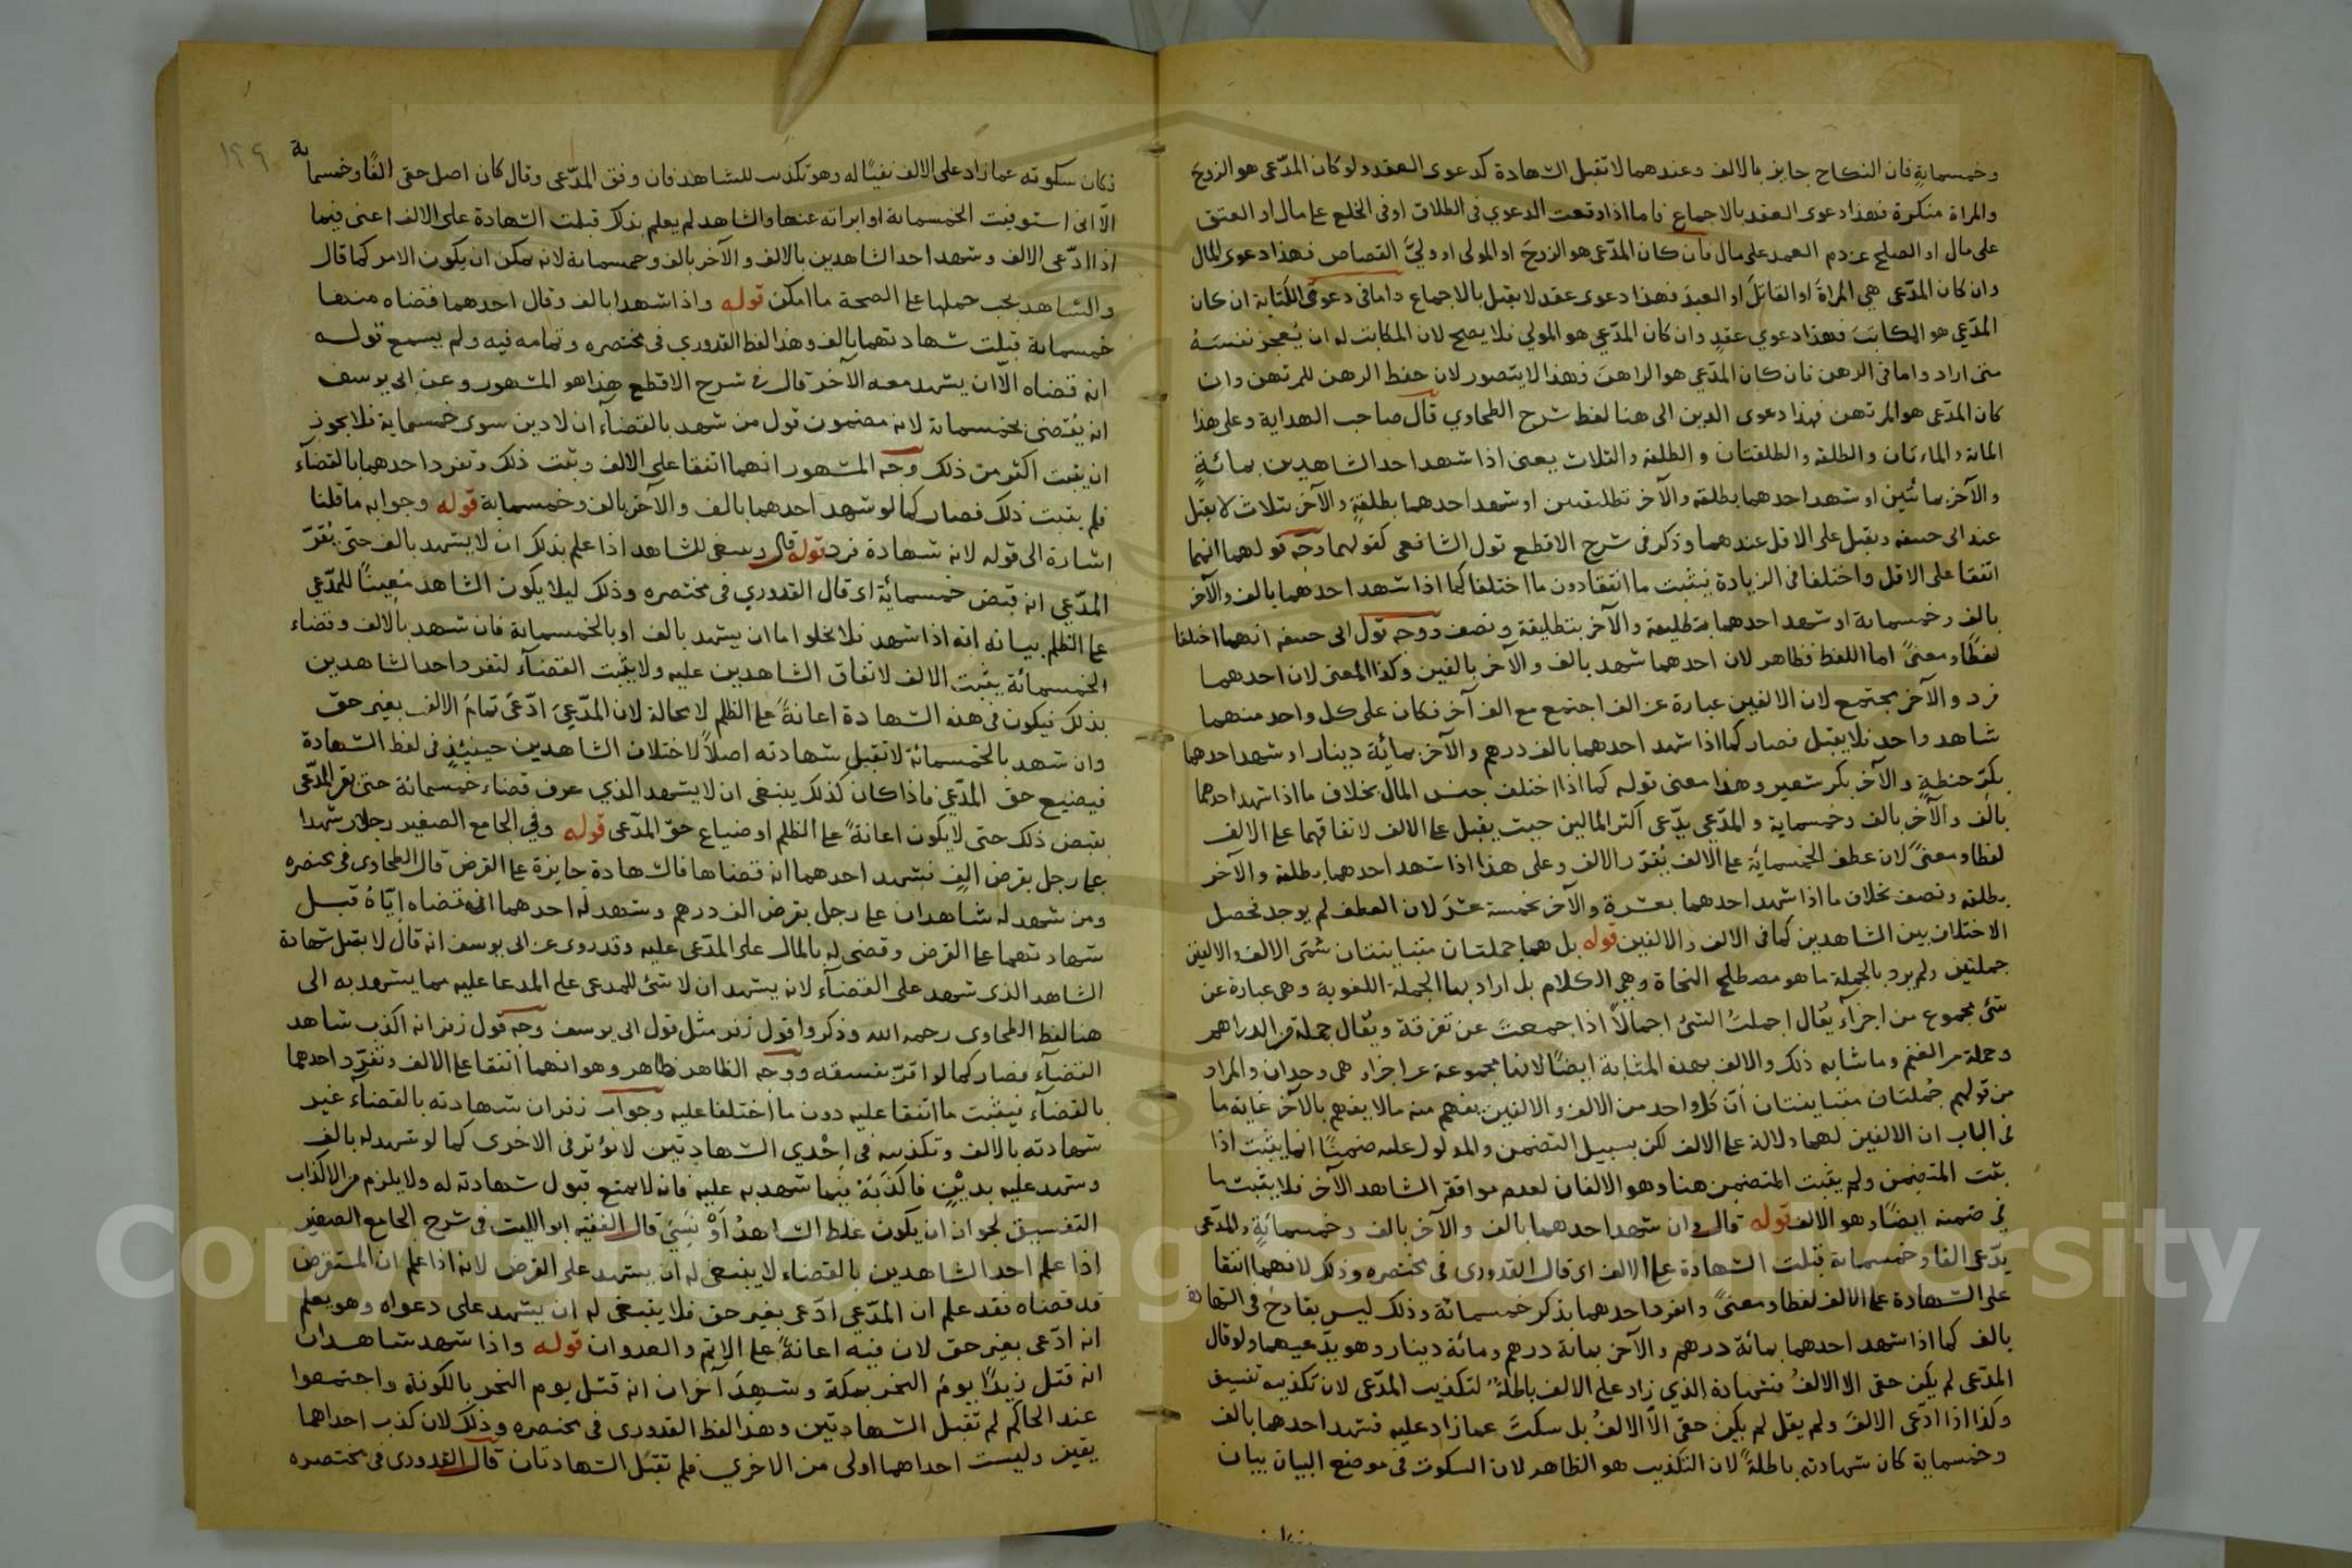 وخمسماية فان النكاح جايز بالالف وعندهما لا تقبل الشهادة كدعوى العقد ولو كان المدّعى هو الزوج
والمراة منكرة فهذا دعوى العقد بالاجماع فاما اذا وقعت الدعوي فى الطلاق او فى الخلع على مال او العتق
على مال او الصلح عن دم العمد على مال فان كان المدّعى هو الزوج او المولى او وليّ القصاص فهذا دعوى المال
وان كان المدّعى هي المراة او القاتل او العبد فهذا دعوى عقد لا يقبل بالاجماع واما فى دعوى الكتابة ان كان
المدّعي هو المكاتب فهذا دعوي عقد وان كان المدّعي هو المولي فلا يصح لان المكاتب له ان يُعجز نفسه
متى اراد واما فى الرهن فان كان المدّعي هو الراهن فهذا لا يتصور لان حفظ الرهن للمرتهن وان
كان المدّعى هو المرتهن فهذا دعوى الدين الى هنا لفظ شرح الطحاوي قال صاحب الهداية وعلى هذا
الماية والماءتان والطلقة والطلقتان و الطلقة والثلاث يعنى اذا شهد احد الشاهدين بمائة
والآخر بمائتين او شهد احدهما بطلقة والآخر تطليقتين او شهد احدهما بطلقة والآخر بثلاث لا يقبل
عند ابى حنيفة ويقبل على الاقل عندهما وذكر فى شرح الاقطع قول الشافعى كقولهما وجه قولهما انهما
اتفقا على الاقل واختلفا فى الزيادة فيثبت ما اتفقا دون ما اختلفا كما اذا شهد احدهما بالف والآخر
بالف وخمسماية او شهد احدهما بتطليقة والآخر بتطليقة ونصف ووجه قول ابى حنيفة انهما اختلفا
لفظًا ومعنىً اما اللفظ فظاهر لان احدهما شهد بالف والآخر بالفين وكذا المعنى لان احدهما
فرد والآخر مجتمع لان الالفين عبارة عن الف اجتمع مع الف آخر فكان على كل واحد منهما
شاهد واحد فلا يقبل فصار كما اذا شهد احدهما بالف درهم والآخر بمائة دينار او شهد احدهما
بكرّ حنطة والآخر بكر شعير وهذا معنى قوله كما اذا اختلف جنس المال بخلاف ما اذا شهد احدهما
بالف والآخر بالف وخمسماية والمدّعي يدّعى اكثر المالين حيث يقبل على الالف لاتفاقهما على الالف
لفظا ومعنىً لان عطف الخمسمائة على الالف يُقرّر الالف وعلى هذا اذا شهد احدهما بطلقة والآخر
بطلقة ونصف بخلاف ما اذا شهد احدهما بعشرة والآخر بخمسة عشر لان العطف لم يوجد فحصل
الاختلاف بين الشاهدين كما فى الالف والالفين قوله بل هما جملتان متباينتان سمّى الالف والالفين
جملتين ولم يرد بالجملة ما هو مصطلح النحاة وهى الكلام بل اراد بها الجملة اللغوية وهى عبارة عن
شئ مجموع من اجزآء يُقال اجملت الشئ اجمالاً اذا جمعت عن تفرقة ويُقال جملة من الدراهم
وجملة من الغنم وما شابه ذلك والالف بهذه المثابة ايضًا لانها مجموعة عن اجزاء هى وحدان والمراد
من قولهم جُملتان متباينتان انّ كل واحد من الالف والالفين يفهم منه ما لا يفهم بالآخر غاية ما
فى الباب ان الالفين لهما دلالة على الالف لكن بسبيل التضمن والمدلول عليه ضمنًا انما يثبت اذا
ثبت المتضمن ولم يثبت المتضمن هنا وهو الالفان لعدم موافقة الشاهد الآخر فلا يثبت ما
فى ضمنه ايضًا وهو الالف قوله قال وان شهد احدهما بالف والآخر بالف وخمسمائة والمدّعى
يدّعى الفا وخمسماية قبلت الشهادة على الالف اى قال القدورى فى مختصره وذلك لانهما اتفقا
على الشهادة على الالف لفظا ومعنىً وانفرد احدهما بذكر خمسمائة وذلك ليس بقادح فى الشهادة
بالف كما اذا شهد احدهما بمائة درهم والآخر بماية درهم ومائة دينار وهو يدّعيهما ولو قال
المدّعى لم يكن حقى الا الالف فشهادة الذي زاد على الالف باطلة لتكذيب المدّعى لان تكذيبه تفسيق
وكذا اذا ادّعى الالف ولم يقل لم يكن حقى الّا الالف بل سكت عما زاد عليه فشهد احدهما بالف
وخمسماية كان شهادته باطلةً لان التكذيب هو الظاهر لان السكوت فى موضع البيان بيان
١٢٩
فكان سكوته عما زاد على الالف نفيًا له وهو تكذيب للشاهد فان وفق المدّعى وقال كان اصل حقى الفًا وخمسماية
الّا انى استوفيت الخمسماية او ابراته عنها والشاهد لم يعلم بذلك قبلت الشهادة على الالف اعنى فيما
اذا ادّعى الالف وشهد احد الشاهدين بالالف والآخر بالف وخمسماية لانه يمكن ان يكون الامر كما قال
والشاهد يجب حملها على الصحة ما امكن قوله واذا شهدا بالف وقال احدهما قضاه منها
خمسماية قبلت شهادتهما بالف وهذا لفظ القدوري فى مختصره وتمامه فيه ولم يسمع قوله
انه قضاه الّا ان يشهد معه الآخر قال فى شرح الاقطع هذا هو المشهور وعن ابى يوسف
انه يُقضى بخمسماية لانه مضمون قول من شهد بالقضآء ان لا دين سوى خمسماية فلا يجوز
ان يثبت اكثر من ذلك وجه المشهور انهما اتفقا على الالف وثبت ذلك وتفرد احدهما بالقضآء
فلم يثبت ذلك فصار كما لو شهد احدهما بالف والآخر بالف وخمسماية قوله وجوابه ما قلنا
اشارة الى قوله لانه شهادة فرد قوله قال وينبغى للشاهد اذا علم بذلك ان لا يشهد بالف حتى يُقرّ
المدّعي انه قبض خمسمائة اى قال القدوري فى مختصره وذلك ليلا يكون الشاهد مُعينًا للمدّعي
على الظلم بيانه انه اذا شهد فلا يخلوا اما ان يشهد بالف او بالخمسماية فان شهد بالالف وقضاء
الخمسمائة يثبت الالف لاتفاق الشاهدين عليه ولا يثبت القضآء لتفرد احد الشاهدين
بذلك فيكون فى هذه الشهادة اعانةً على الظلم لا محالة لان المدّعي ادّعى تمام الالف بغير حق
وان شهد بالخمسمائة لا تقبل شهادته اصلاً لاختلاف الشاهدين حينئذ فى لفظ الشهادة
فيضيع حق المدّعي فاذا كان كذلك ينبغى ان لا يشهد الذي عرف قضاء خمسمائة حتى يقر المدّعى
بقبض ذلك حتى لا يكون اعانةً على الظلم او ضياع حقّ المدّعى قوله وفى الجامع الصغير رجلان شهدا
على رجل بقرض الف فشهد احدهما انه قضاها فالشهادة جايزة على القرض قال الطحاوى فى مختصره
ومن شهد له شاهدان على رجل بقرض الف درهم وشهد له احدهما انه قضاه ايّاه قبل
شهادتهما على القرض وقضى له بالمال على المدّعى عليه وقد روى عن ابى يوسف انه قال لا يقبل شهادة
الشاهد الذى شهد على القضآء لانه يشهد ان لا شئ للمدعى على المدعا عليه مما يشهد به الى
هنا لفظ الطحاوى رحمه الله وذكروا قول زفر مثل قول ابى يوسف وجه قول زفر انه اكذب شاهد
القضآء فصار كما لو اقرّ بفسقه ووجه الظاهر ظاهر وهو انهما اتفقا على الالف وتفرّد احدهما
بالقضآء فيثبت ما اتفقا عليه دون ما اختلفا عليه وجواب زفر ان شهادته بالقضآء غير
شهادته بالالف وتكذيبه فى احْدي الشهادتين لا يؤثر فى الاخرى كما لو شهد له بالف
وشهد عليه بديْن فاكذبه فيما شهد به عليه فانه لا يمنع قبول شهادته له ولا يلزم من الاكذاب
التفسيق لجواز ان يكون غلط الشاهدُ اوْ نَسِيَ قال الفقيه ابو الليث فى شرح الجامع الصغير
اذا علم احد الشاهدين بالقضاء لا ينبغى له ان يشهد على القرض لانه اذا علم ان المستقرض
قد قضاه فقد علم ان المدّعي ادّعى بغير حق فلا ينبغى له ان يشهد على دعواه وهو يعلم
انه ادّعى بغير حق لان فيه اعانةً على الاثم والعدوان قوله واذا شهد شاهدان
انه قتل زيدًا يوم النحر بمكة وشهد آخران انه قتل يوم النحر بالكوفة واجتمعوا
عند الحاكم لم تقبل الشهادتين وهذا لفظ القدورى فى مختصره وذلك لان كذب احداهما
يقين وليست احداهما اولى من الاخري فلم تقبل الشهادتان قال القدورى فى مختصره
Copyright © King Saud University